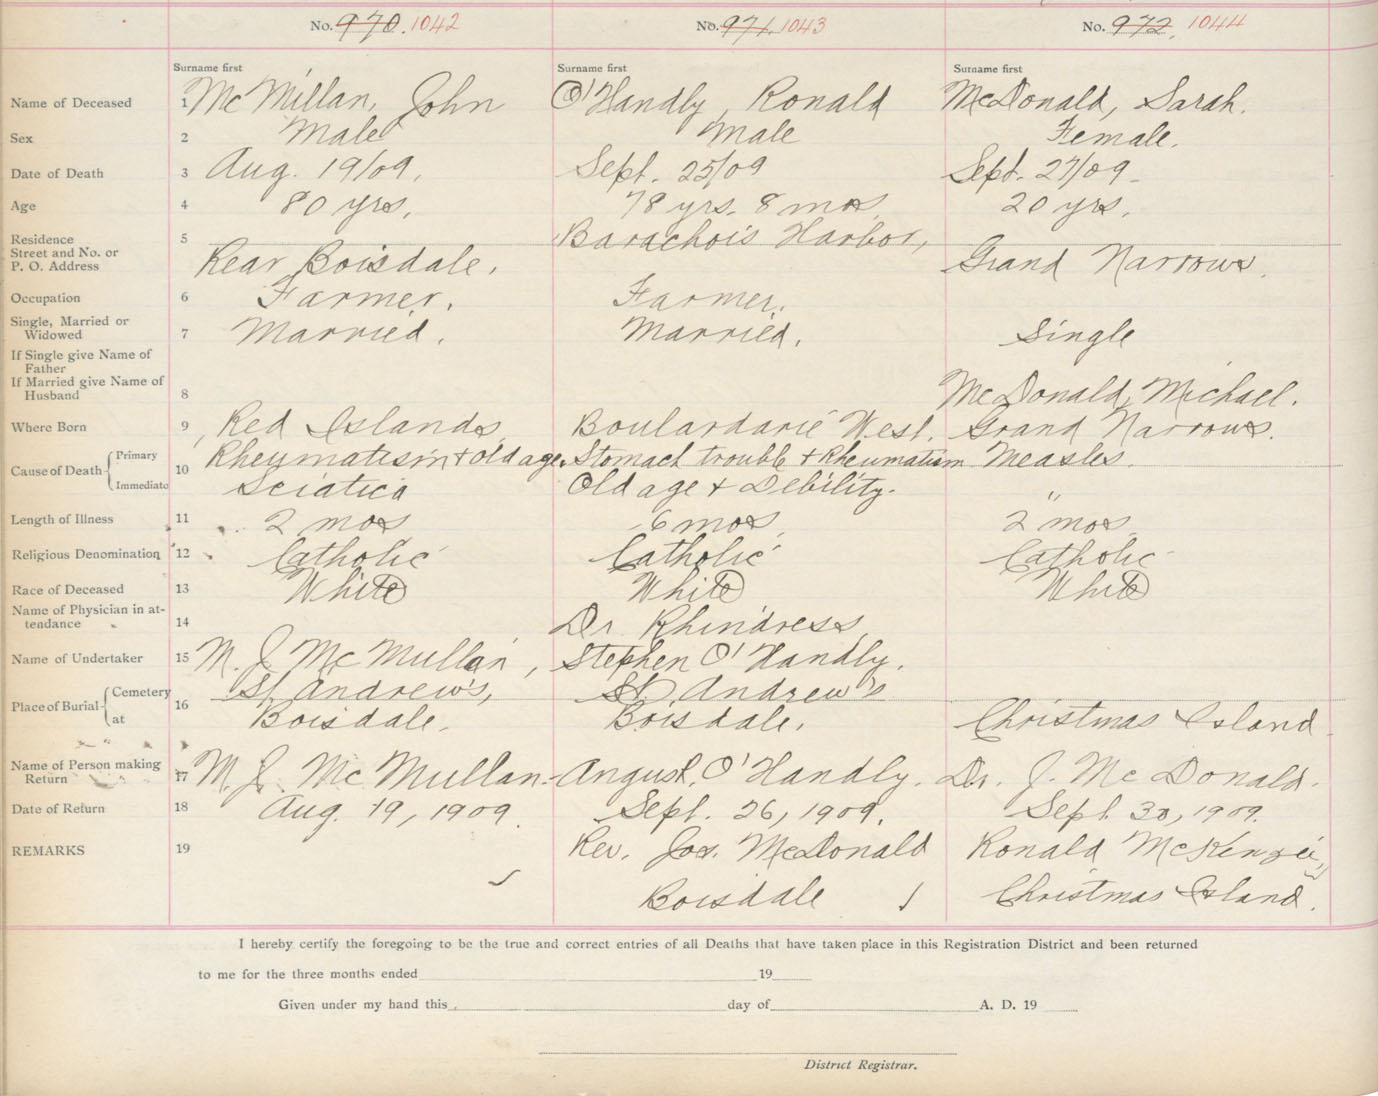 No. 970. 1042 No. 971. 1043 No. 972. 1044
Surname first Surname first Surname first
Name of Deceased 1 McMillan, John O'Handly, Ronald McDonald, Sarah.
Sex 2 Male Male Female.
Date of Death 3 Aug. 19/09. Sept. 25/09 Sept. 27/09.
Age 4 80 yrs. 78 yrs. 8 mos 20 yrs.
Residence 5 Barachois Harbor,
Street and No. or
P. O. Address Rear Boisdale. Grand Narrows.
Occupation 6 Farmer. Farmer.
Single, Married or
Widowed 7 Married. Married. Single
If Single give Name of
Father
If Married give Name of
Husband 8 McDonald, Michael.
Where Born 9 Red Islands Boulardarie West. Grand Narrows.
Cause of Death Primary 10 Rheumatism + old age. Stomach trouble + Rheumatism Measles.
Immediate Sciatica Old age + Debility. "
Length of Illness 11 2 mos 6 mos 2 mos
Religious Denomination 12 Catholic Catholic Catholic
Race of Deceased 13 White White White
Name of Physician in at-
tendance 14 Dr. Rhindress
Name of Undertaker 15 M. J. McMullan, Stephen O'Handly.
Place of Burial Cemetery 16 St. Andrew's, St. Andrew's
at Boisdale. Boisdale. Christmas Island.
Name of Person making
Return 17 M. J. McMullan. Angus O'Handly. Dr. J. McDonald.
Date of Return 18 Aug. 19, 1909. Sept. 26, 1909. Sept. 30, 1909.
REMARKS 19 Rev. Jos. McDonald Ronald McKenzie,
Boisdale Christmas Island.
I hereby certify the foregoing to be the true and correct entries of all Deaths that have taken place in this Registration District and been returned
to me for the three months ended 19
Given under my hand this day of A. D. 19
District Registrar.